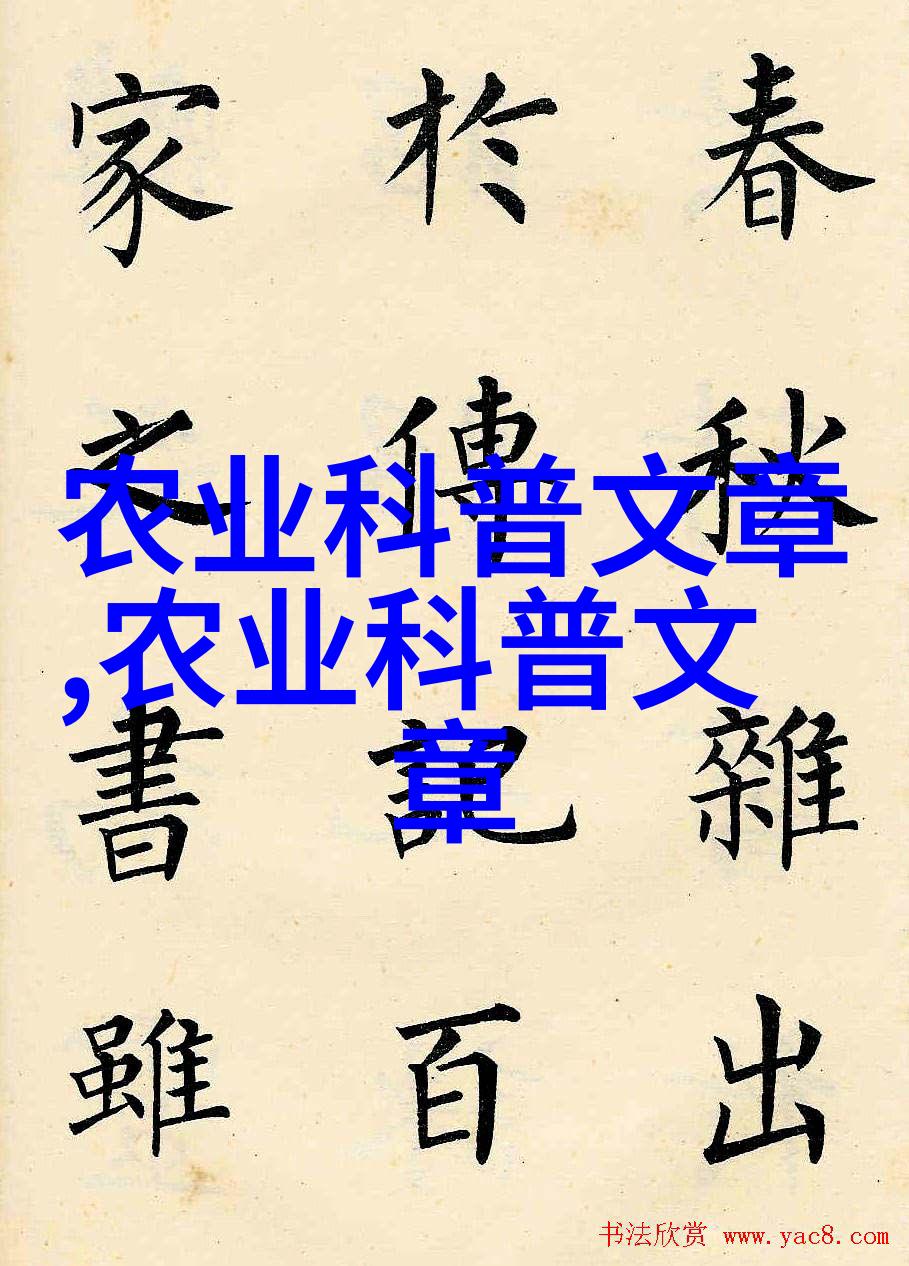 春秋雜出
於傳記百
家之書雖
农业科普文章
,农业科普文
章
书法欣赏 www.yac8.com